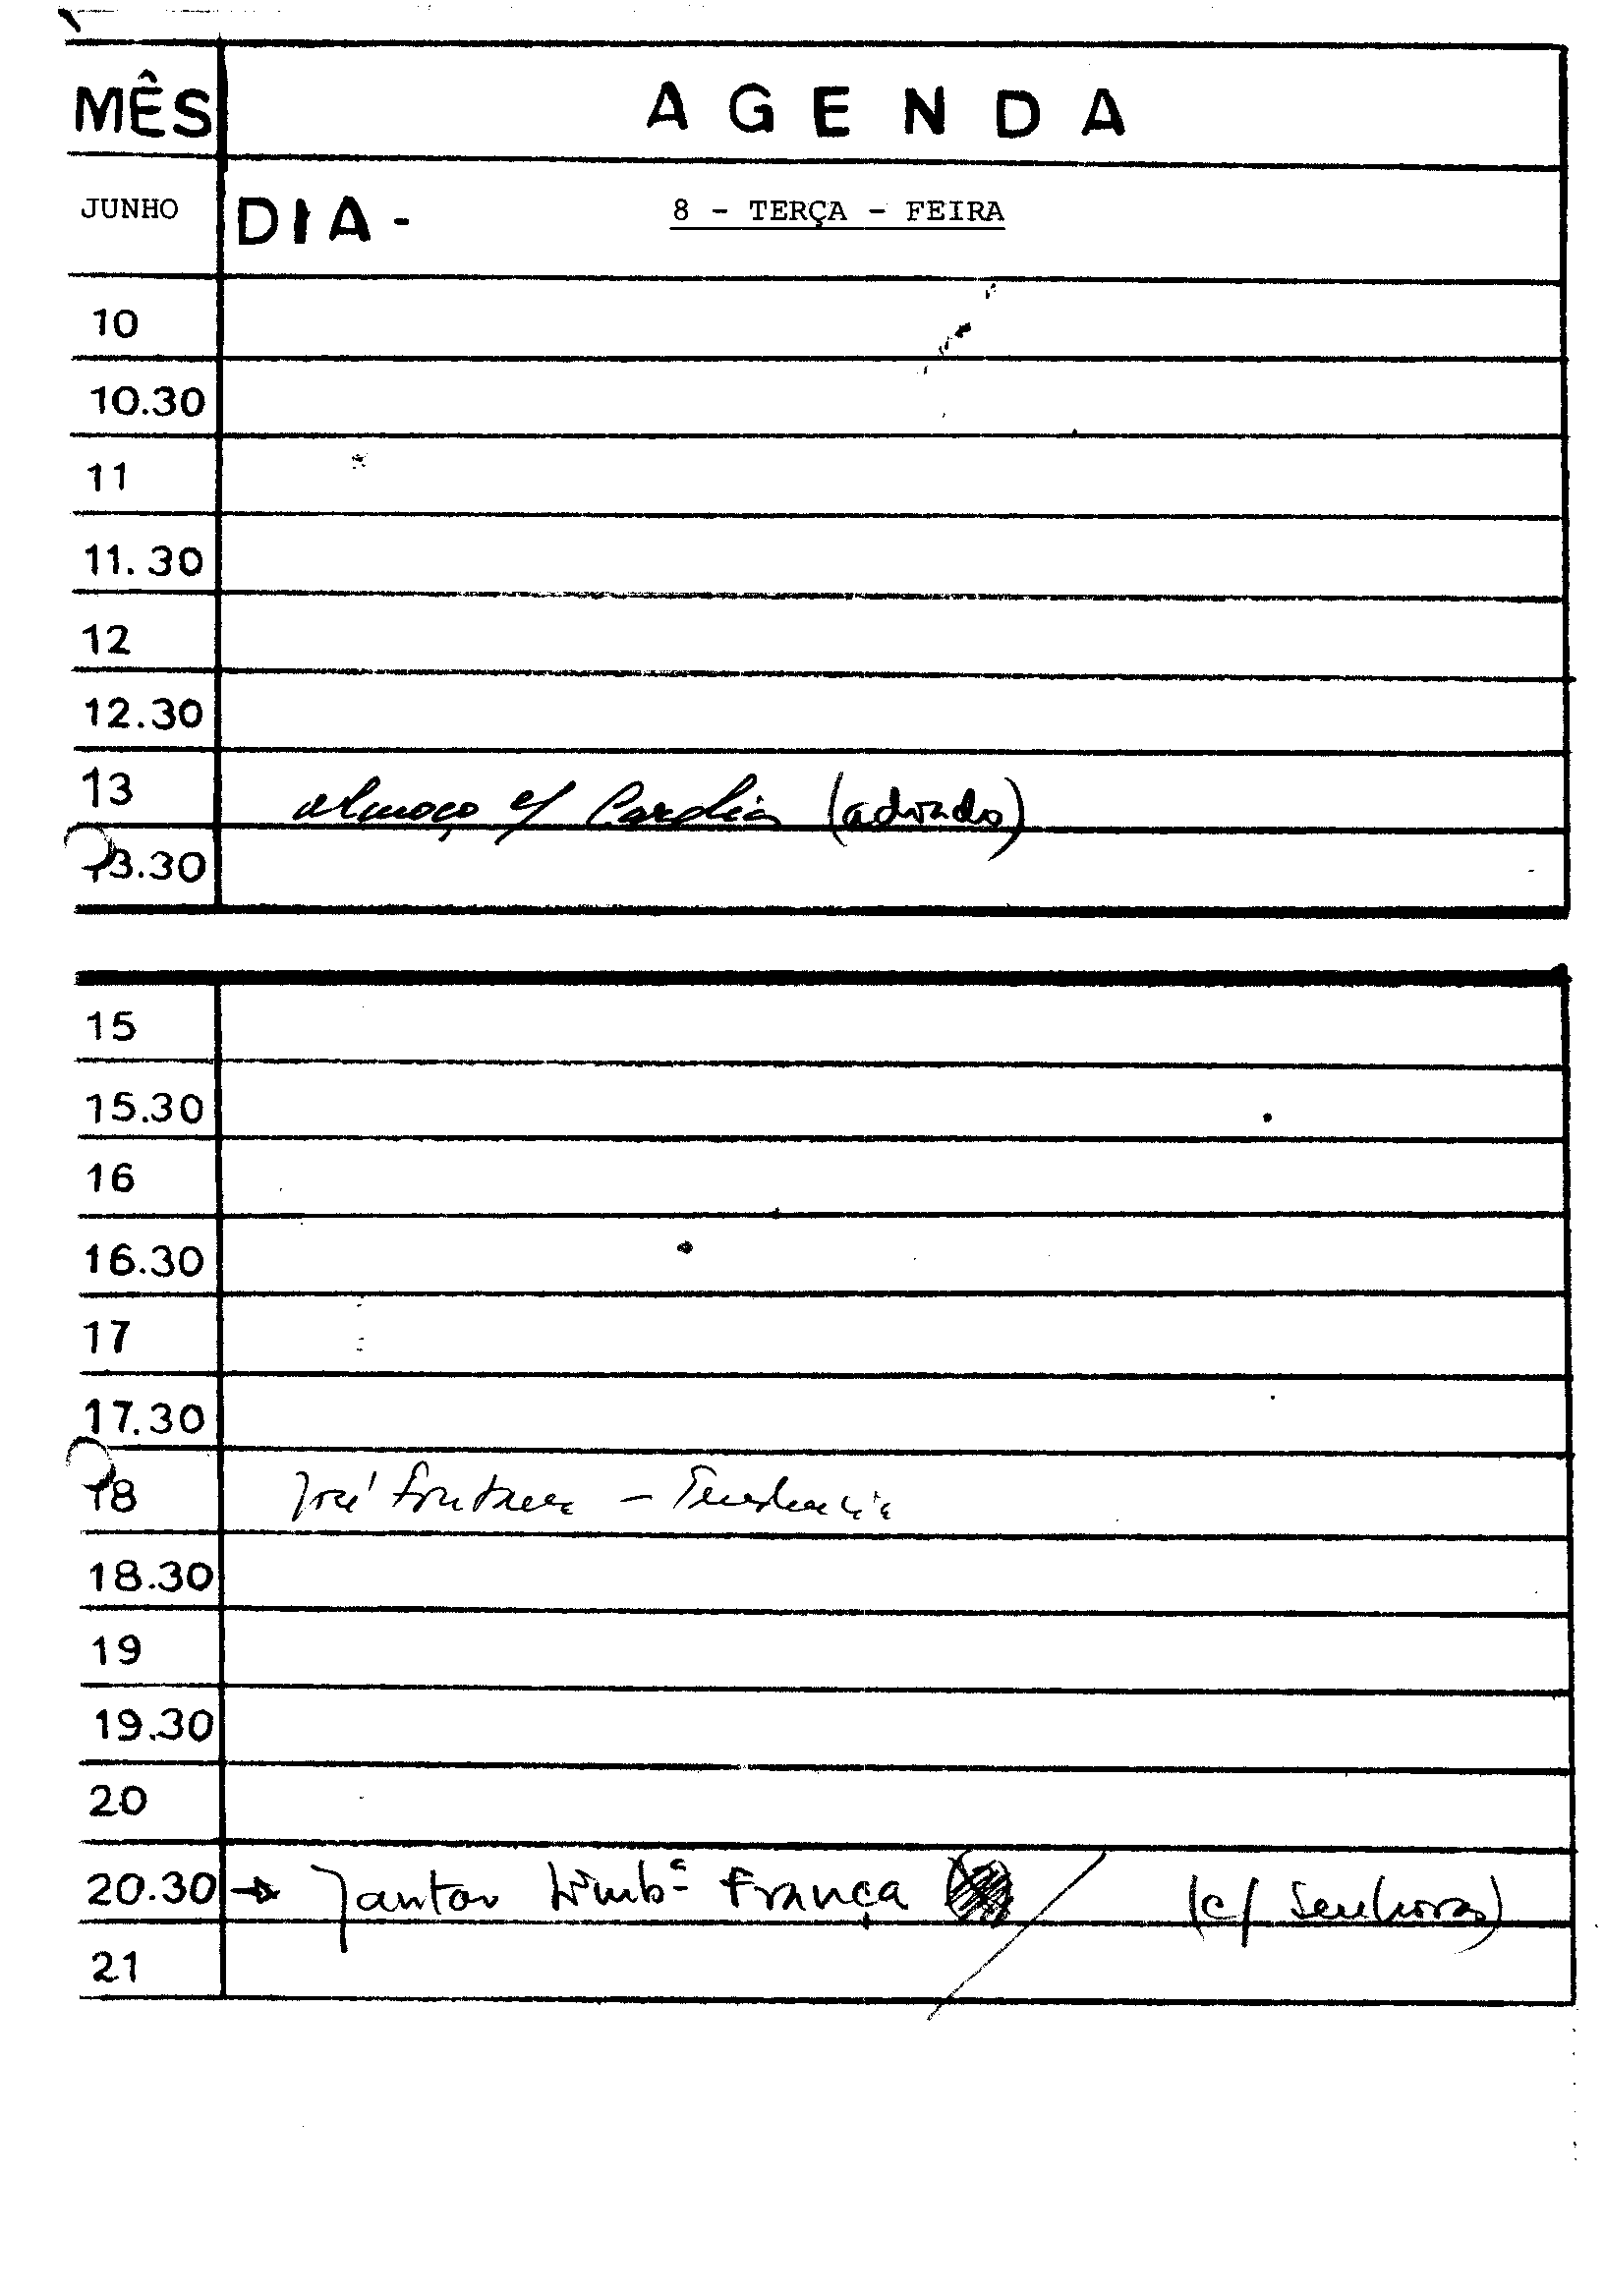 MÊS AGENDA
JUNHO DIA - 8 - TERÇA - FEIRA
10
10.30
11
11.30
12
12.30
13 almoço c/ Cardia (adiado)
13.30
15
15.30
16
16.30
17
17.30
18 José Fontana -
18.30
19
19.30
20
20.30 → Jantar Emb.ª França (c/ senhoras)
21